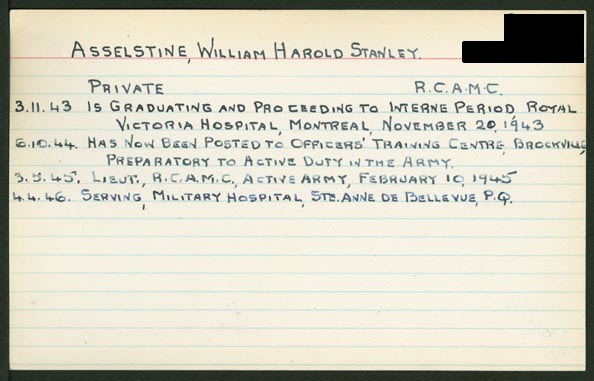 ASSELSTINE, WILLIAM HAROLD STANLEY.
PRIVATE R.C.A.M.C.
3.11.43 IS GRADUATING AND PROCEEDING TO INTERNE PERIOD ROYAL
VICTORIA HOSPITAL, MONTREAL, NOVEMBER 20, 1943
6.10.44. HAS NOW BEEN POSTED TO OFFICERS' TRAINING CENTRE, BROCKVILLE
PREPARATORY TO ACTIVE DUTY IN THE ARMY.
3.5.45. LIEUT., R.C.A.M.C., ACTIVE ARMY, FEBRUARY 10, 1945
4.4.46. SERVING, MILITARY HOSPITAL, STE. ANNE DE BELLEVUE, P.Q.